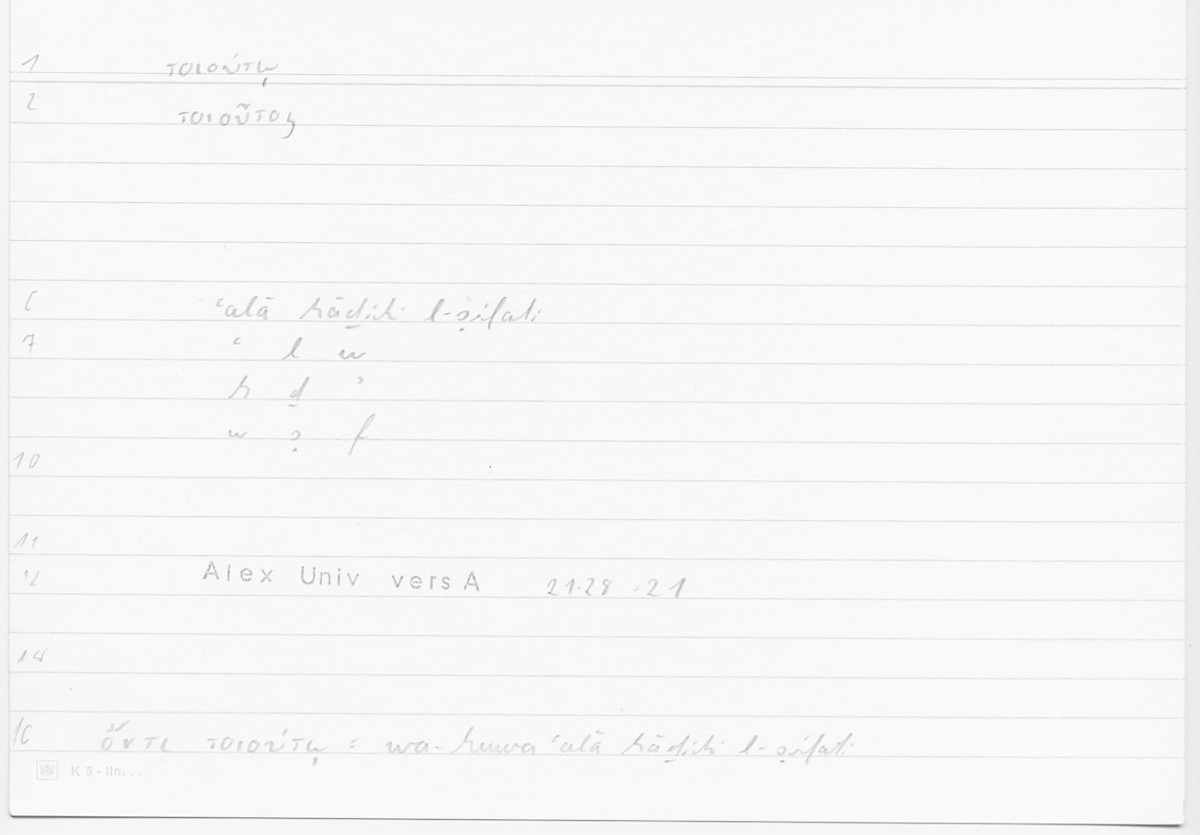 1 τοιούτῳ
2 τοιοῦτος
6 ʿalā hāḏihi l-ṣifati
7 ʿ l w
h ḏ ʾ
w ṣ f
10
11
12 Alex Univ vers A 21.28 :21
14
16 ὄντι τοιούτῳ = wa-huwa ʿalā hāḏihi l-ṣifati
K 5 - lin...